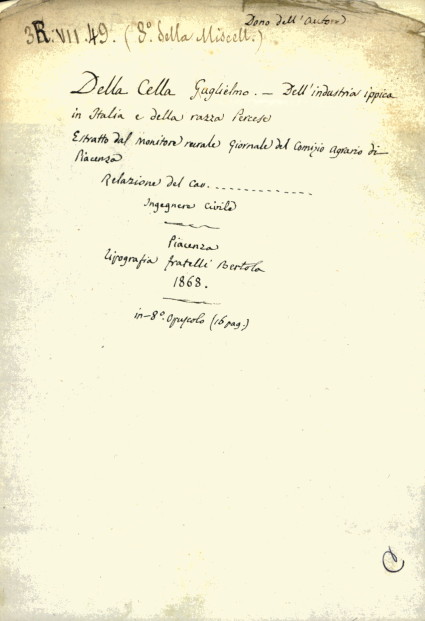 Dono dell'Autore
3R.VII.49. (8º. della Miscell.)
Della Cella Guglielmo. — Dell'industria ippica
in Italia e della razza Percese
Estratto dal monitore rurale Giornale del Comizio Agrario di
Piacenza
Relazione del Cav. . . . . . . . . . . . .
Ingegnere Civile
Piacenza
Tipografia fratelli Bertola
1868.
in-8º. Opuscolo (16 pag.)